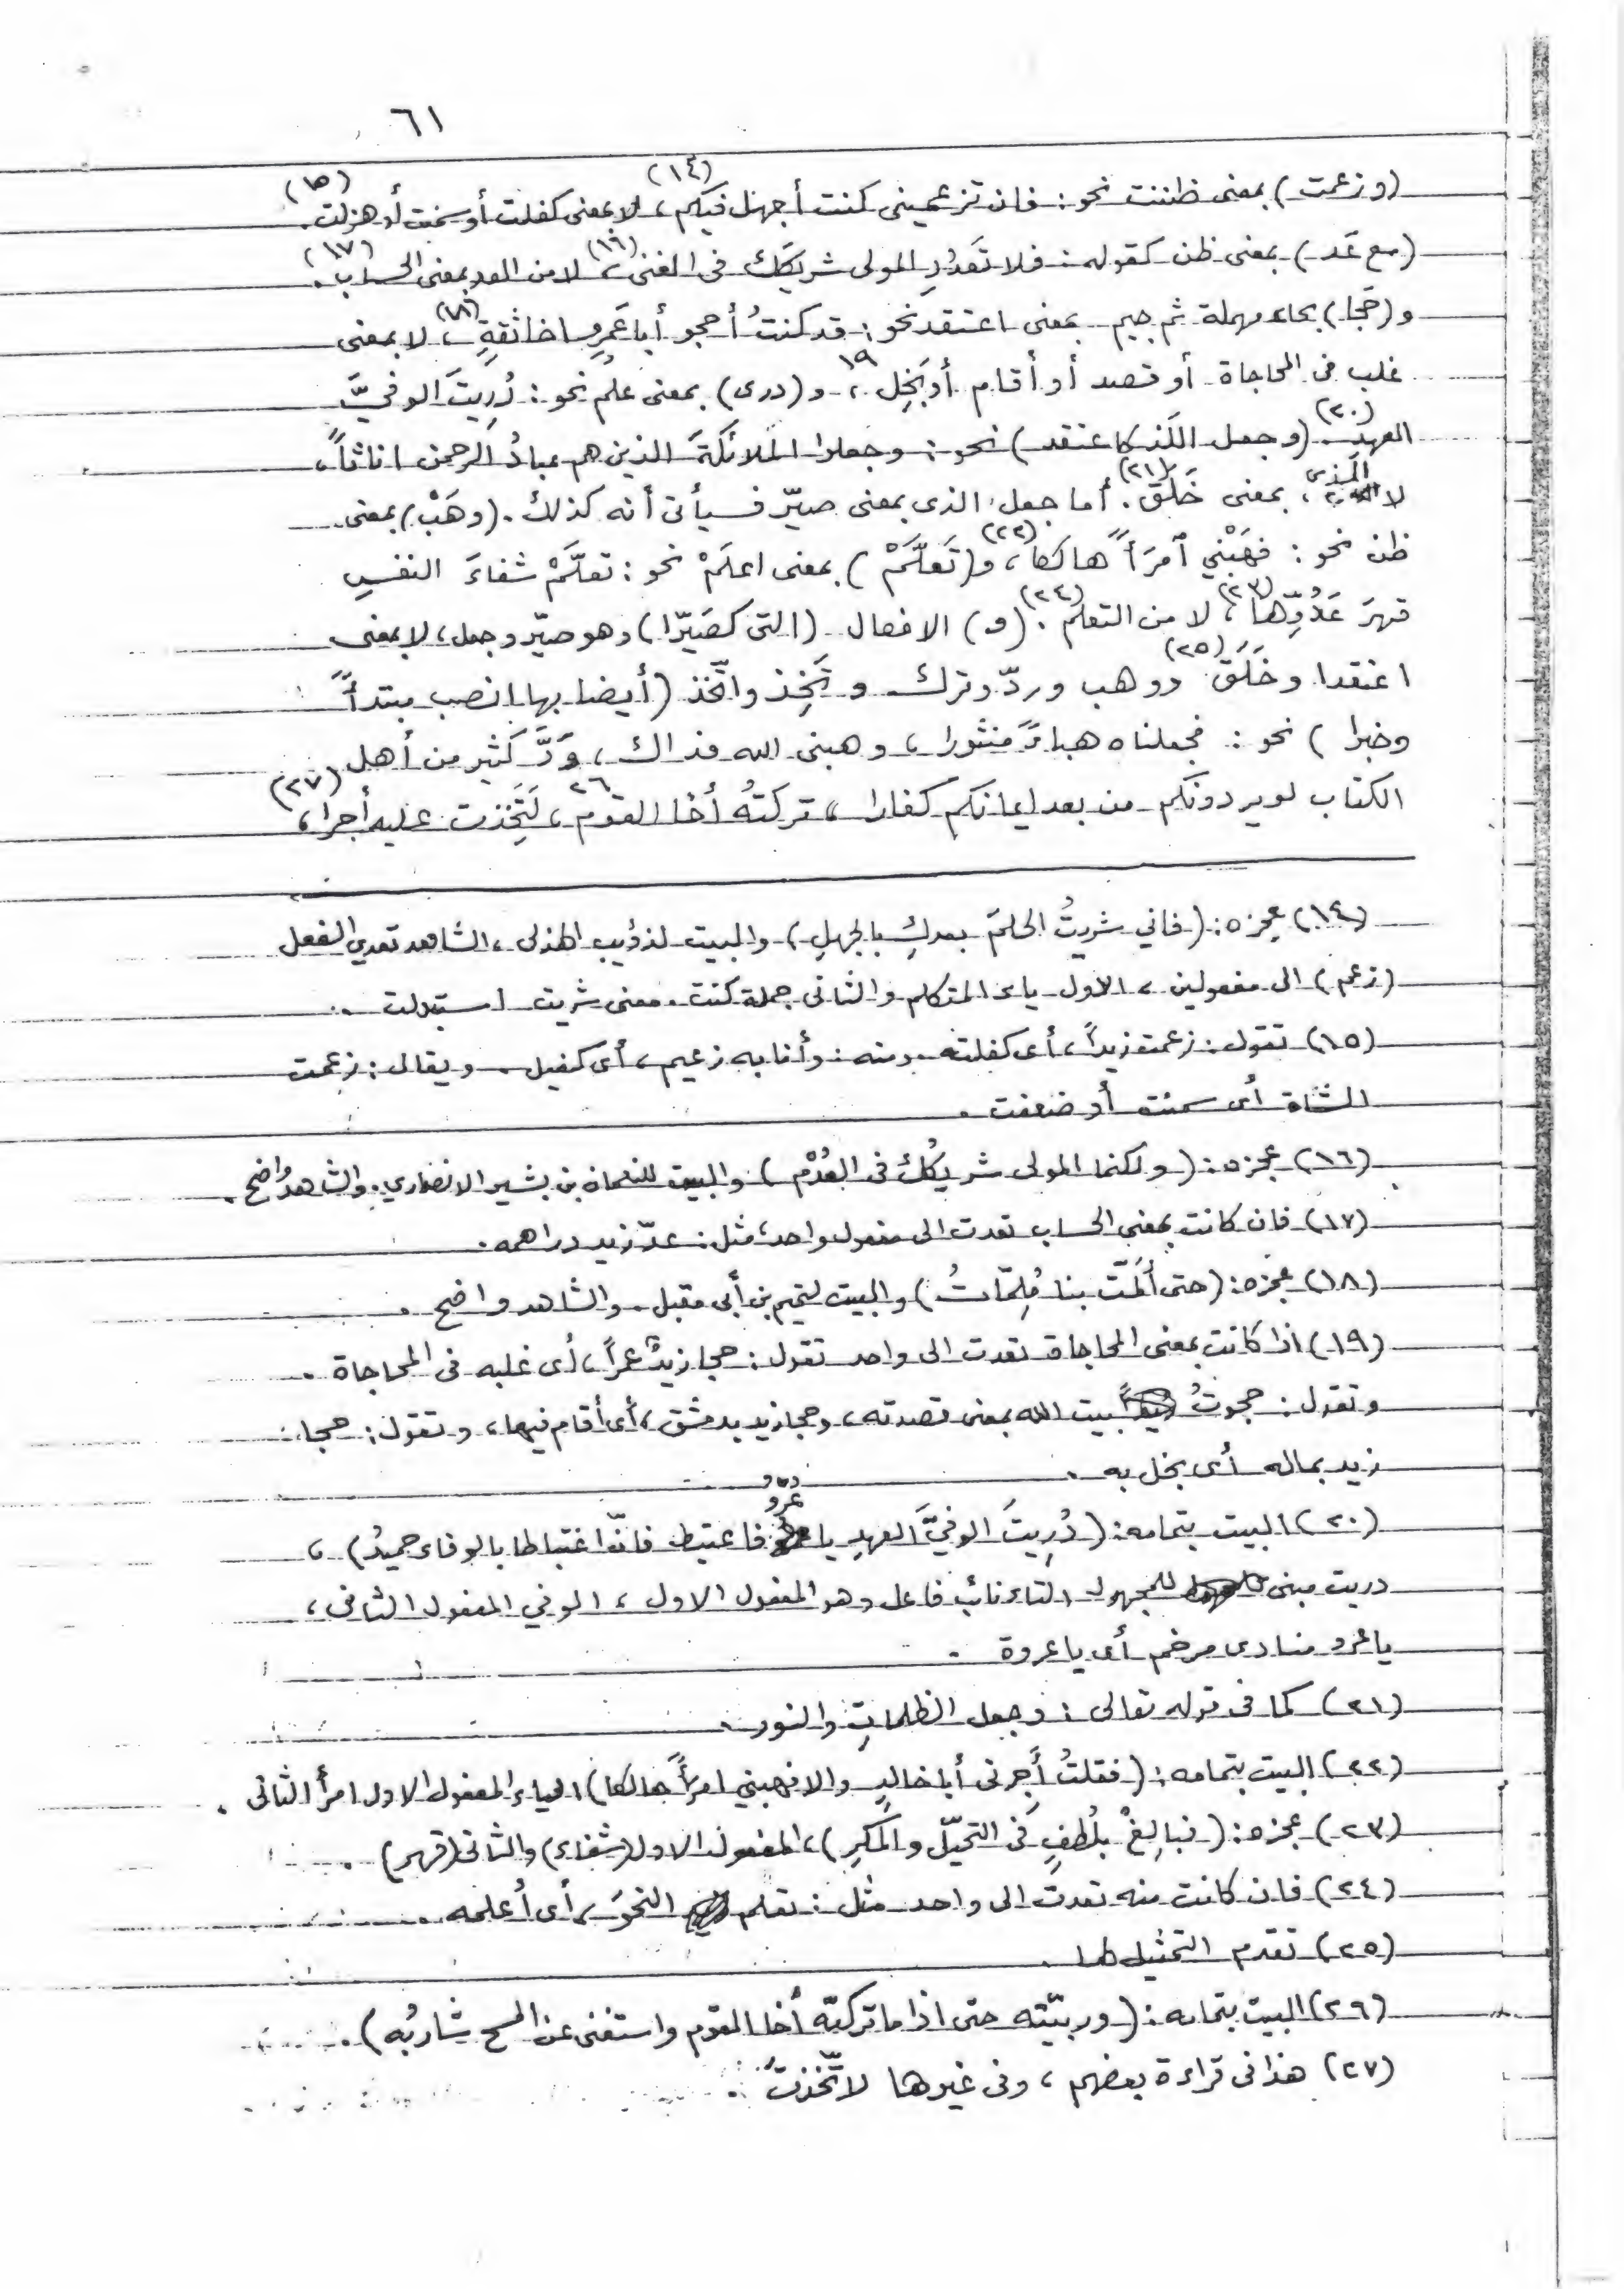 ٦١
(و زعمت) بمعنى ظننت نحو: فان تزعميني كنت أجهل فيكم (١٤)، لا بمعنى كفلت أو سمنت أو هزلت (١٥).
(مع عَد) بمعنى ظن كقوله: فلا تَعدُدِ المولى شريكَك فى الغنى (١٦)، لا من العد بمعنى الحساب (١٧).
و (حَجا) بحاء مهملة ثم جيم بمعنى اعتقد نحو: قد كنتُ أحجو أبا عَمرٍو اخا ثقةٍ (١٨)، لا بمعنى
غلب فى المحاجاة أو قصد أو أقام أو بَخِل ١٩، و (درى) بمعنى علم نحو: دُرِيتَ الوفيَّ
العهدِ (٢٠). (و جعل اللَّذ كاعتقد) نحو: وجعلوا الملائكَةَ الذين هم عبادُ الرحمن اناثاً،
لا الذى، بمعنى خَلَق (٢١). أما جعل الذى بمعنى صيّر فسيأتى أنه كذلك. (وهَبْ) بمعنى
ظن نحو: فهَبْني ٱمرَأً هالكا (٢٢)، و (تَعلَّمْ) بمعنى اعلَمْ نحو: تعلَّمْ شفاءَ النفسِ
قهرَ عَدُوِّها (٢٣)، لا من التعلم (٢٤). (و) الافعال (التى كصَيَّرا) وهو صيّر وجعل، لا بمعنى
اعتقدا وخَلَقَ (٢٥) ووهب وردّ وترك و تَخِذ واتّخذ (أيضا بها انصب مبتدأً
وخبرا) نحو: فجعلناه هباءً منثورا، وهبنى الله فداك، وَدَّ كثير من أهل
الكتاب لو يردونكم من بعد ايمانكم كفارا، تركتُه أخا القوم ٢٦، لَتَخِذت عليه أجرا (٢٧)،
(١٤) عجزه: (فاني شريتُ الحلمَ بعدكِ بالجهلِ) والبيت لذؤيب الهذلى، الشاهد تعدي الفعل
(زعم) الى مفعولين، الاول ياء المتكلم والثانى جملة كنت. معنى شريت استبدلت.
(١٥) تقول: زعمت زيداً، أى كفلته. ومنه: وأنا به زعيم، أى كفيل. ويقال: زعمت
الشاة أى سمنت أو ضعفت.
(١٦) عجزه: (ولكنما المولى شريكُك فى العُدْم) والبيت للنعمان بن بشير الانصاري. والشاهد واضح.
(١٧) فان كانت بمعنى الحساب تعدت الى مفعول واحد، مثل: عدّ زيد دراهمه.
(١٨) عجزه: (حتى ألمّت بنا مُلِمّاتُ) والبيت لتميم بن أبى مقبل. والشاهد واضح.
(١٩) اذا كانت بمعنى المحاجاة تعدت الى واحد تقول: حجا زيدٌ عمراً، أى غلبه فى المحاجاة.
وتقول: حجوتُ بيت الله بمعنى قصدته، وحجا زيد بدمشق، أى أقام فيها، وتقول: حجا
زيد بماله أى بخل به.
(٢٠) البيت بتمامه: (دُرِيتَ الوفيَّ العهدِ يا عرو فاغتبط فانّ اغتباطا بالوفاء حميدُ)،
دريت مبنى للمجهول التاء نائب فاعل وهو المفعول الاول، الوفي المفعول الثانى،
يا عرو منادى مرخم أى يا عروة.
(٢١) كما فى قوله تعالى: وجعل الظلماتِ والنور.
(٢٢) البيت بتمامه: (فقلتُ أَجِرنى أبا خالدٍ والا فهبني امرأً هالكا) الياء المفعول الاول امرأ الثانى.
(٢٣) عجزه: (فبالِغْ بلُطفٍ فى التحيّل والمكرِ)، المفعول الاول (شفاء) والثانى (قهر).
(٢٤) فان كانت منه تعدت الى واحد مثل: تعلم النحوَ، أى أعلمه.
(٢٥) تقدم التمثيل لها.
(٢٦) البيت بتمامه: (وربّيته حتى اذا ما تركته أخا القوم واستغنى عن المسح شاربُه).
(٢٧) هذا فى قراءة بعضهم، وفى غيرها لاتّخذتَ.